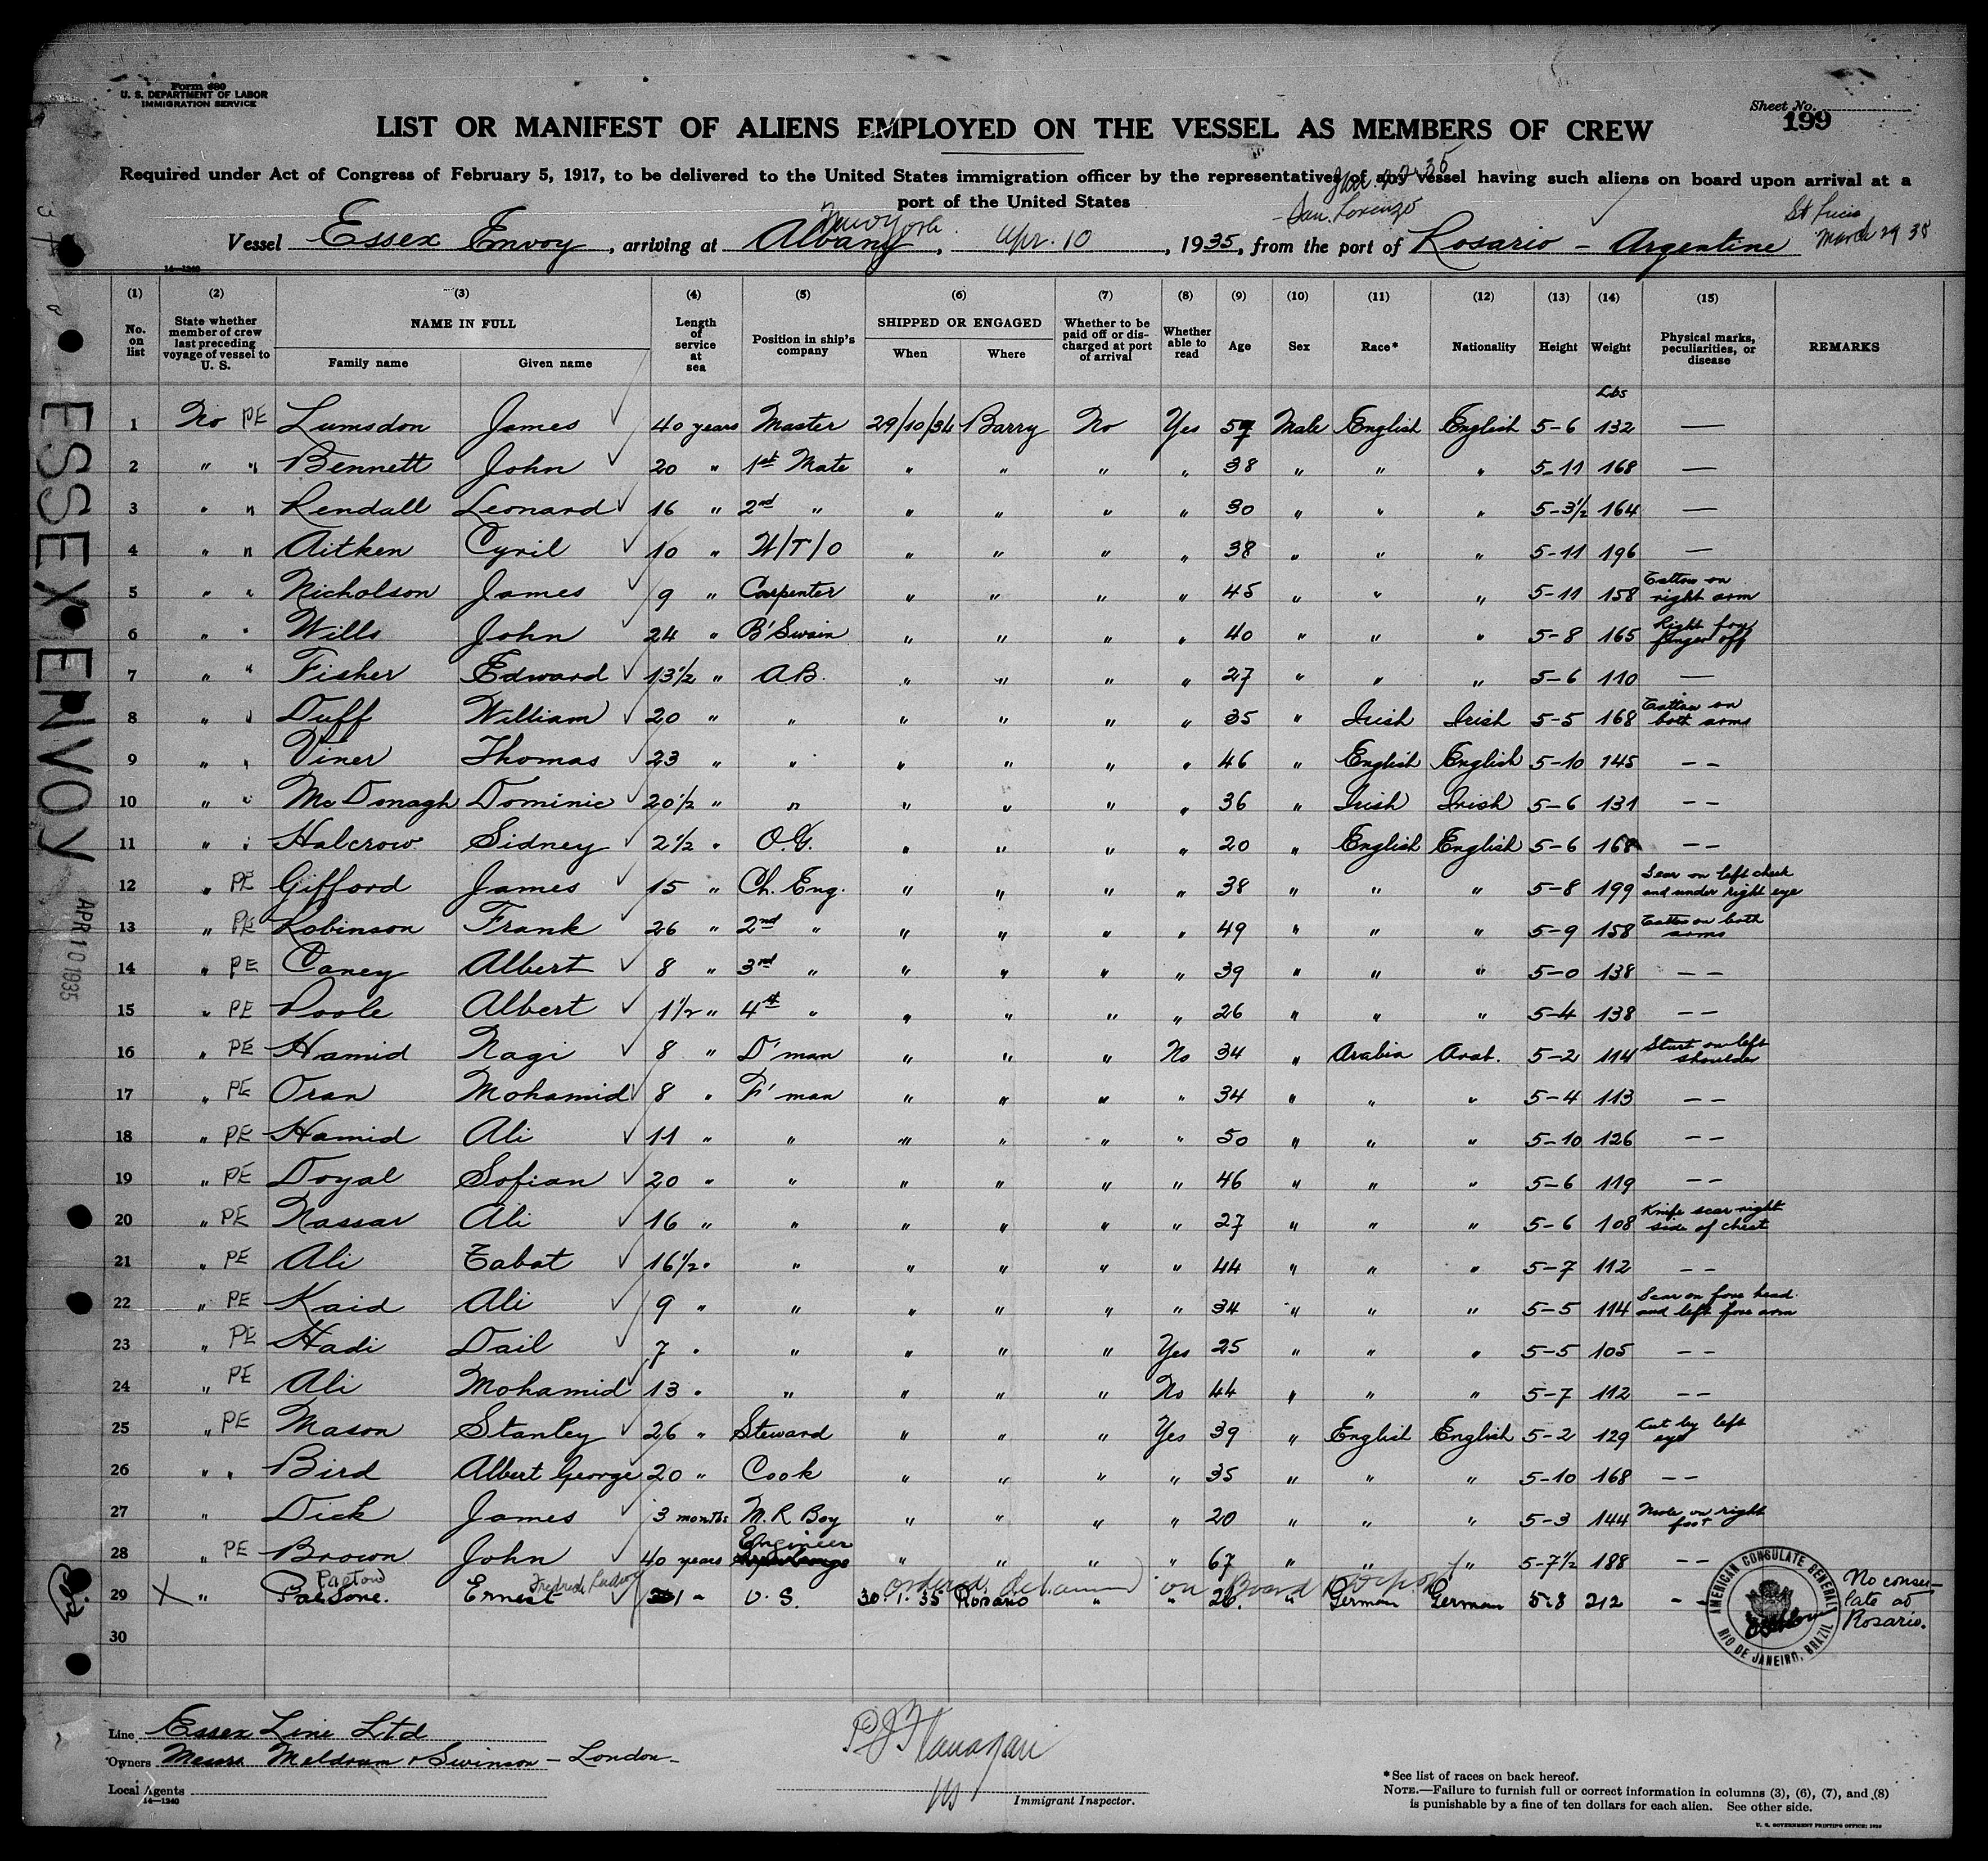 Form 680
U. S. DEPARTMENT OF LABOR
IMMIGRATION SERVICE
Sheet No.
199
LIST OR MANIFEST OF ALIENS EMPLOYED ON THE VESSEL AS MEMBERS OF CREW
Required under Act of Congress of February 5, 1917, to be delivered to the United States immigration officer by the representatives of any vessel having such aliens on board upon arrival at a
port of the United States
New York
San Lorenzo
St Lucia
March 29 35
Vessel Essex Envoy, arriving at Albany, Apr. 10, 1935, from the port of Rosario - Argentine
14-1240
(1) (2) (3) (4) (5) (6) (7) (8) (9) (10) (11) (12) (13) (14) (15)
No. on list
State whether member of crew last preceding voyage of vessel to U. S.
NAME IN FULL
Family name
Given name
Length of service at sea
Position in ship's company
SHIPPED OR ENGAGED
When
Where
Whether to be paid off or discharged at port of arrival
Whether able to read
Age
Sex
Race*
Nationality
Height
Weight
Physical marks, peculiarities, or disease
REMARKS
Lbs
1 No PE Lumsdon James 40 years Master 29/10/34 Barry No Yes 57 Male English English 5-6 132 —
2 " " Bennett John 20 " 1st Mate " " " " 38 " " " 5-11 168 —
3 " " Rendall Leonard 16 " 2nd " " " " " 30 " " " 5-3½ 164 —
4 " " Aitken Cyril 10 " W/T/O " " " " 38 " " " 5-11 196 —
5 " " Nicholson James 9 " Carpenter " " " " 45 " " " 5-11 158 Tattoo on right arm
6 " " Wills John 24 " B'Swain " " " " 40 " " " 5-8 165 Right fore finger off
7 " " Fisher Edward 13½ " A.B. " " " " 27 " " " 5-6 110 —
8 " " Duff William 20 " " " " " " 35 " Irish Irish 5-5 168 Tattoo on both arms
9 " " Viner Thomas 23 " " " " " " 46 " English English 5-10 145 — —
10 " " McDonagh Dominic 20½ " " " " " " 36 " Irish Irish 5-6 131 — —
11 " " Halcrow Sidney 2½ " O.S. " " " " 20 " English English 5-6 168 — —
12 " PE Gifford James 15 " Ch. Eng. " " " " 38 " " " 5-8 199 Scar on left cheek and under right eye
13 " PE Robinson Frank 26 " 2nd " " " " " 49 " " " 5-9 158 Tattoo on both arms
14 " PE Caney Albert 8 " 3rd " " " " " 39 " " " 5-0 138 — —
15 " PE Poole Albert 1½ " 4th " " " " " 26 " " " 5-4 138 — —
16 " PE Hamid Nagi 8 " D'man " " " No 34 " Arabia Arab. 5-2 114 left shoulder
17 " PE Oran Mohamid 8 " F'man " " " " 34 " " " 5-4 113 — —
18 " PE Hamid Ali 11 " " " " " " 50 " " " 5-10 126 — —
19 " PE Doyal Sofian 20 " " " " " " 46 " " " 5-6 119 — —
20 " PE Nassar Ali 16 " " " " " " 27 " " " 5-6 108 Knife scar right side of chest
21 " PE Ali Tabat 16½ " " " " " " 44 " " " 5-7 112 — —
22 " PE Kaid Ali 9 " " " " " " 34 " " " 5-5 114 Scar on fore head and left fore arm
23 " PE Hadi Dail 7 " " " " " Yes 25 " " " 5-5 105 — —
24 " PE Ali Mohamid 13 " " " " " No 44 " " " 5-7 112 — —
25 " PE Mason Stanley 26 " Steward " " " Yes 39 " English English 5-2 129 Cut by left eye
26 " " Bird Albert George 20 " Cook " " " " 35 " " " 5-10 168 — —
27 " Dick James 3 months M. R Boy " " " " 20 " " " 5-3 144 Mole on right foot
28 " PE Brown John 40 years Engineer " " " " 67 " " " 5-7½ 188 — —
Pastow Fredrick Ludwig ordered detained on Board
29 X " Ernest 1 " O. S. 30.1.35 Rosario " " 26. " German German 5-8 212 - -
30
No consulate at Rosario.
AMERICAN CONSULATE GENERAL
RIO DE JANEIRO, BRAZIL
ESSEX ENVOY
APR 10 1935
Line Essex Line Ltd
Owners Messrs Meldrum & Swinson - London -
Local Agents
14-1240
P J Flanagan
Immigrant Inspector.
* See list of races on back hereof.
NOTE.—Failure to furnish full or correct information in columns (3), (6), (7), and (8)
is punishable by a fine of ten dollars for each alien. See other side.
U. S. GOVERNMENT PRINTING OFFICE: 1929